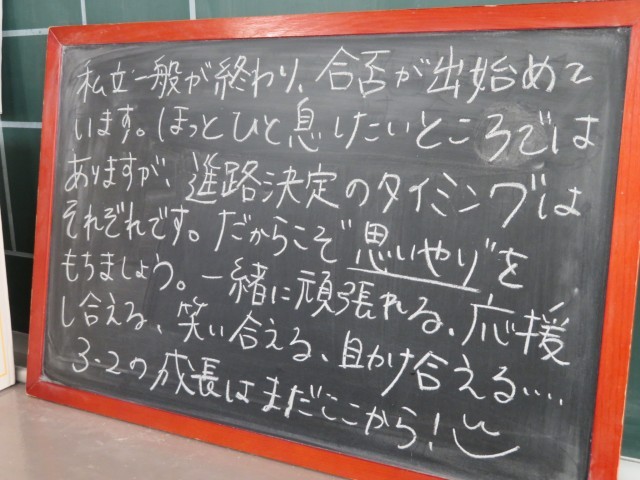 私立一般が終わり、合否が出始めて
います。ほっとひと息したいところでは
ありますが、進路決定のタイミングは
それぞれです。だからこそ"思いやり"を
もちましょう。一緒に頑張れる、応援
し合える、笑い合える、助け合える....
3-2の成長はまだここから!